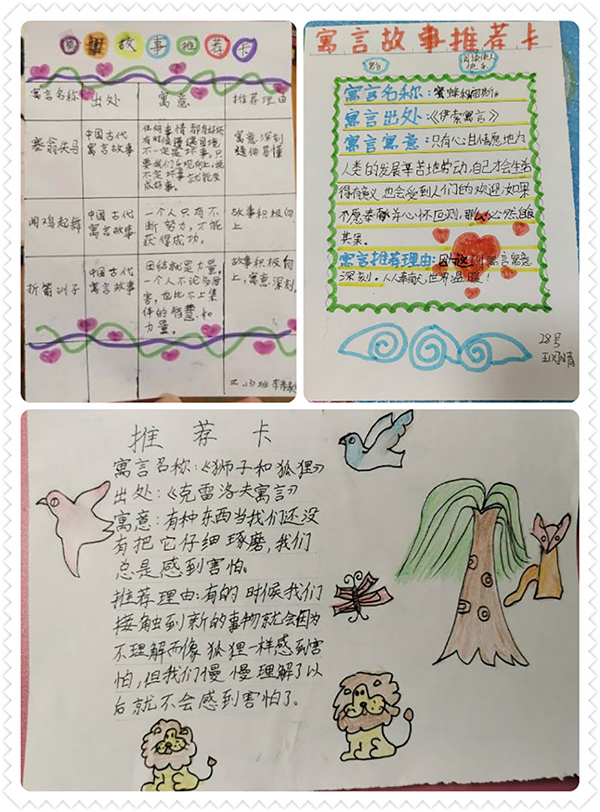 寓言故事推荐卡
寓言名称 出处 寓意 推荐理由
塞翁失马
中国古代
寓言故事
任何事情都有好坏
有时候遭遇困境
不一定是坏事，只
要我们乐观向上，说
不定坏事就能变
成好事。
寓意深刻
通俗易懂
闻鸡起舞
中国古代
寓言故事
一个人只有不
断努力，才能
获得成功。
故事积极向
上
折箭训子
中国古代
寓言故事
团结就是力量，
一个人不论多厉
害，也比不上集
体的智慧和
力量。
故事积极向
上，寓意深刻
寓言故事推荐卡
寓言名称：蜜蜂和雨斯。
寓言出处：《伊索寓言》
寓言寓意：只有心甘情愿地为
人类的发展辛苦地劳动，自己才会生活
得有意义，也会受到人们的欢迎；如果
不愿奉献并心怀叵测，那么必然自食
其果。
寓言推荐理由：因为这则寓言寓意
深刻。人人奉献，世界温暖！
28号
推荐卡
寓言名称：《狮子和狐狸》
出处：《克雷洛夫寓言》
寓意：有种东西当我们还没
有把它仔细琢磨，我们
总是感到害怕。
推荐理由：有的时候我们
接触到新的事物就会因为
不理解而像狐狸一样感到害
怕，但我们慢慢理解了以
后就不会感到害怕了。